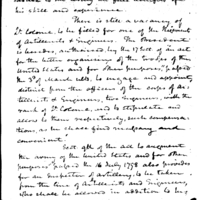 his skill and experience.
There is still a vacancy of
Lt Colonel to be filled for one of the Regiment
of Artillerists & Engineers. The President
is besides, authorised, by the 17 Sect. of an act
for the better organizing of the troops of the
United States and for other purposes, passed
the 3d of March 1799. to engage and appoint,
distinct from the officers of the corps of Ar-
tillerists & Engineers, two Engineers, with the
rank of Lt Colonel, and to stipulate and
allow to them respectively, such compensa-
tions, as he shall find necessary and
convenient.
Sect 9th of the act to augment
the army of the United States and for other
purposes passed the 16 July 1798 also provides
for an Inspector of Artillery, to be taken
from the line of Artillerists and Engineers,
who shall be allowed in addition to his